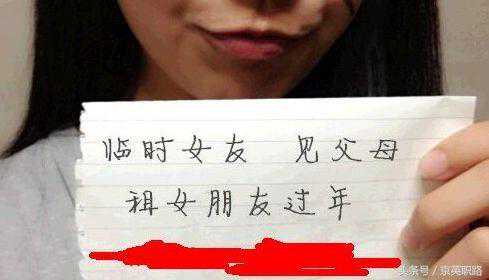 临时女友 见父母
租女朋友过年
头条号/京英职路